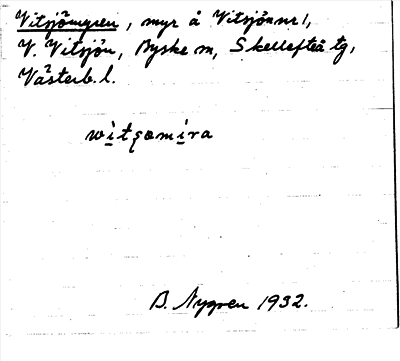 Vitsjömyren, myr å Vitsjön nr 1,
V. Vitsjön, Byske sn, Skellefteå tg,
Västerb. l.
witsomira
B. Nygren 1932.